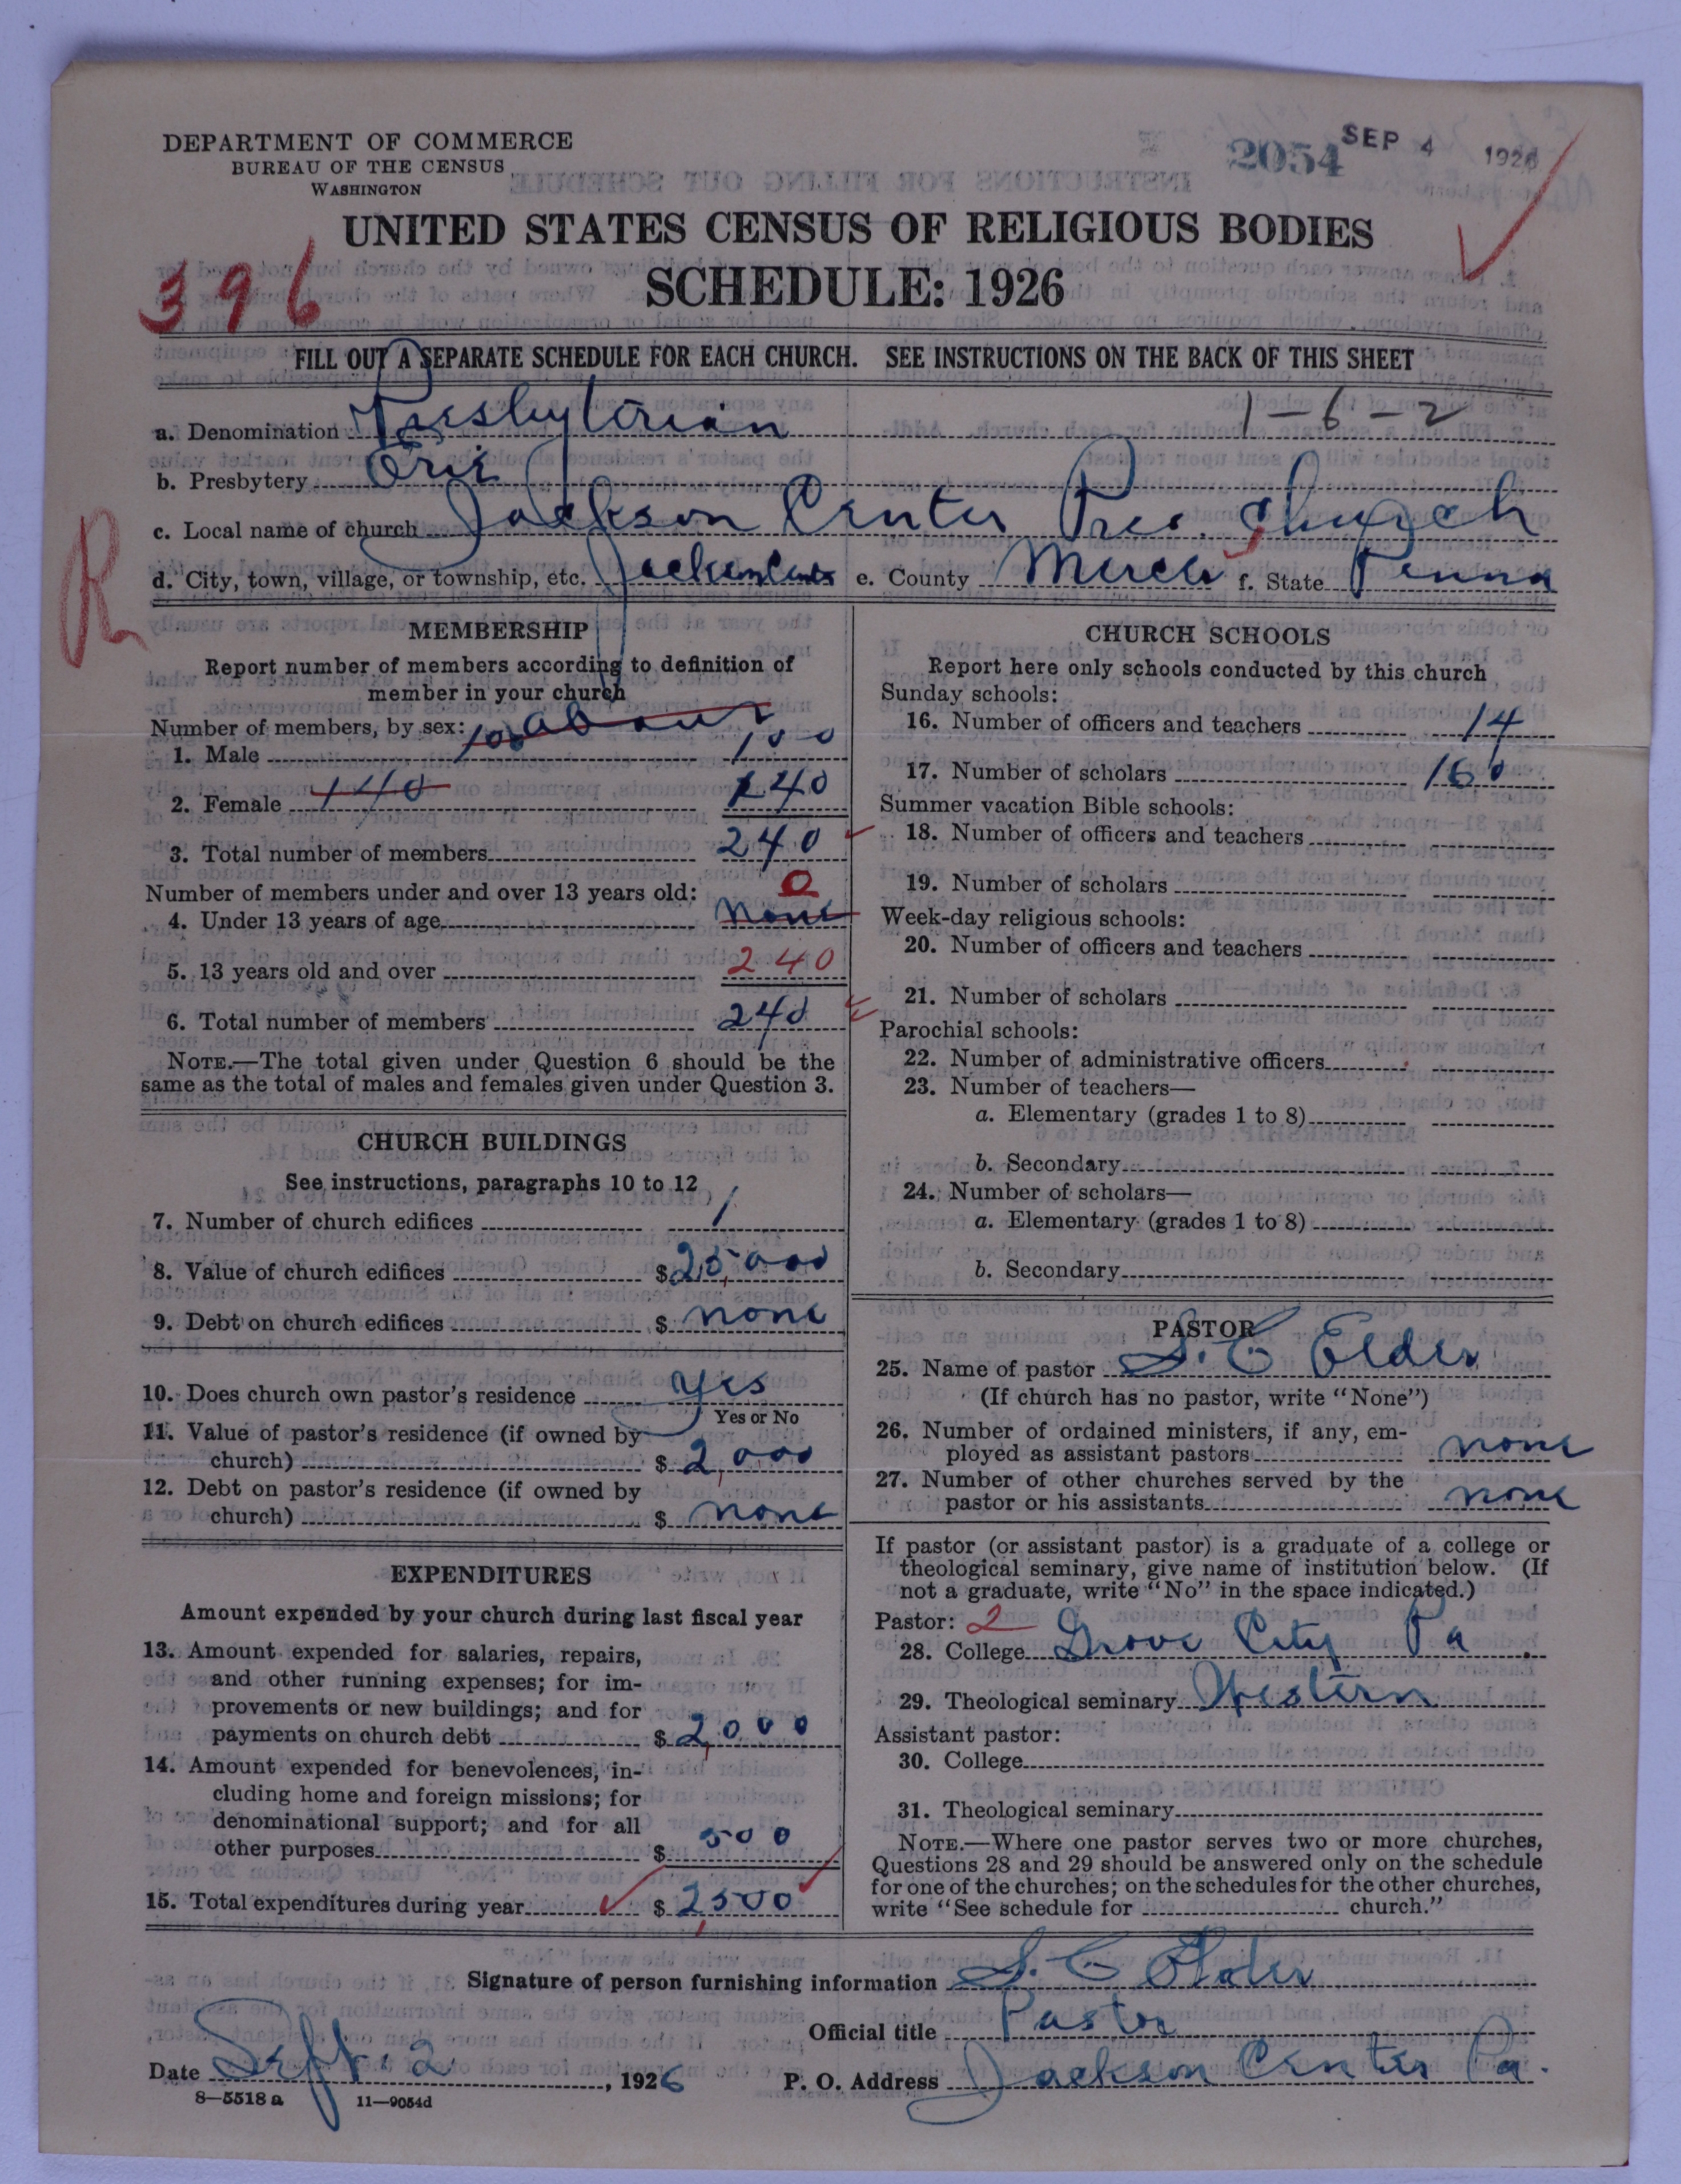 DEPARTMENT OF COMMERCE
BUREAU OF THE CENSUS
WASHINGTON
2054 SEP 4 1926
UNITED STATES CENSUS OF RELIGIOUS BODIES
SCHEDULE: 1926
396
FILL OUT A SEPARATE SCHEDULE FOR EACH CHURCH. SEE INSTRUCTIONS ON THE BACK OF THIS SHEET
a. Denomination Presbyterian 1-6-2
b. Presbytery Erie
c. Local name of church Jackson Center Pres. Church
d. City, town, village, or township, etc. Jackson Center e. County Mercer f. State Penna
R
MEMBERSHIP
Report number of members according to definition of
member in your church
Number of members, by sex: about
1. Male 100 100
2. Female 140 140
3. Total number of members 240
Number of members under and over 13 years old: 0
4. Under 13 years of age none
5. 13 years old and over 240
6. Total number of members 240
NOTE.—The total given under Question 6 should be the
same as the total of males and females given under Question 3.
CHURCH BUILDINGS
See instructions, paragraphs 10 to 12
7. Number of church edifices 1
8. Value of church edifices $25,000
9. Debt on church edifices $ none
10. Does church own pastor's residence Yes
Yes or No
11. Value of pastor's residence (if owned by
church) $ 2,000
12. Debt on pastor's residence (if owned by
church) $ none
EXPENDITURES
Amount expended by your church during last fiscal year
13. Amount expended for salaries, repairs,
and other running expenses; for im-
provements or new buildings; and for
payments on church debt $ 2,000
14. Amount expended for benevolences, in-
cluding home and foreign missions; for
denominational support; and for all
other purposes $ 500
15. Total expenditures during year $ 2,500
CHURCH SCHOOLS
Report here only schools conducted by this church
Sunday schools:
16. Number of officers and teachers 14
17. Number of scholars 160
Summer vacation Bible schools:
18. Number of officers and teachers
19. Number of scholars
Week-day religious schools:
20. Number of officers and teachers
21. Number of scholars
Parochial schools:
22. Number of administrative officers
23. Number of teachers—
a. Elementary (grades 1 to 8)
b. Secondary
24. Number of scholars—
a. Elementary (grades 1 to 8)
b. Secondary
PASTOR
25. Name of pastor S. C Elder
(If church has no pastor, write "None")
26. Number of ordained ministers, if any, em-
ployed as assistant pastors none
27. Number of other churches served by the
pastor or his assistants none
If pastor (or assistant pastor) is a graduate of a college or
theological seminary, give name of institution below. (If
not a graduate, write "No" in the space indicated.)
Pastor: 2
28. College Grove City Pa
29. Theological seminary Western
Assistant pastor:
30. College
31. Theological seminary
NOTE.—Where one pastor serves two or more churches,
Questions 28 and 29 should be answered only on the schedule
for one of the churches; on the schedules for the other churches,
write "See schedule for church."
Signature of person furnishing information S. C Elder
Official title Pastor
Date Sept. 2, 1926 P. O. Address Jackson Center Pa.
8—5518 a 11—9054d